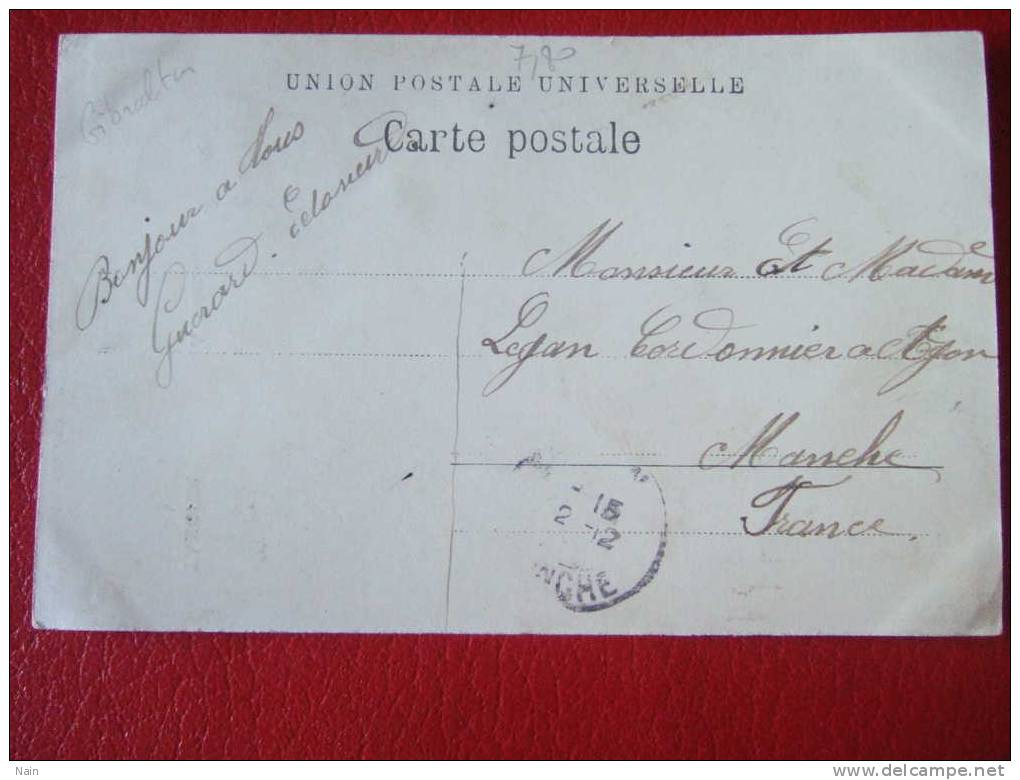 7,80
Gibraltar
UNION POSTALE UNIVERSELLE
Carte postale
Bonjour a tous
Guerard.
Monsieur Et Madame
Lejan Cordonnier a
Manche
France.
15
2 12
NCHE
Nain
delcampe.net